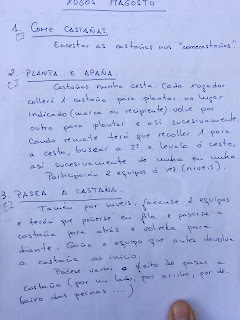 XOGOS MAGOSTO
1. COME CASTAÑAS.
Encestar as castañas nos "comecastañas".
2. PLANTA E APAÑA.
Castañas nunha cesta. Cada xogador
collerá 1 castaña para plantar no lugar
indicado (marca ou recipiente) volve por
outra para plantar e así sucesivamente
Cando remate terá que recoller 1 para
a cesta, buscar a 2ª e levala ó cesto,
así sucesivamente de unha en unha.
Participarán 2 equipos á vez (niveis).
3. PASEA A CASTAÑA.
Tamén por niveis, faranse 2 equipos
e terán que poñerse en fila e pasarse a
castaña para atrás e volvela para
diante. Gaña o equipo que antes devolva
a castaña ao inicio.
Pódese variar o feito de pasar a
castaña (por un lado, por arriba, por de-
baixo das pernas ...)